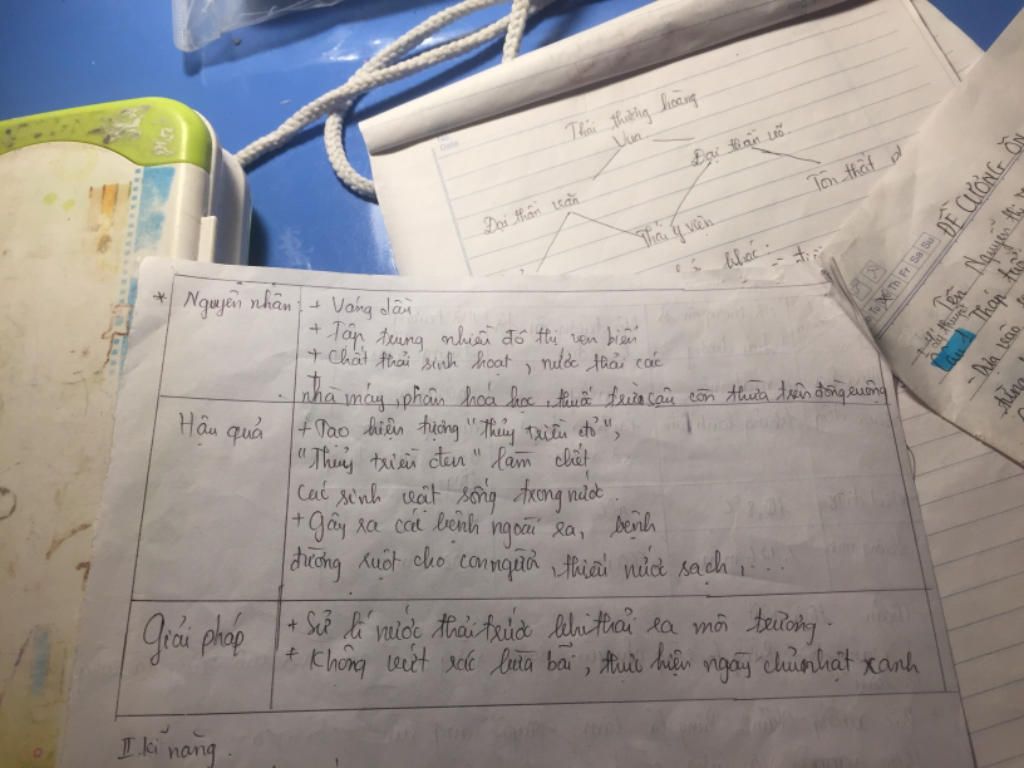 Date
Thái thượng hoàng
Vua
Đại thần võ
Đại thần văn
Tôn thất
Thái y viện
ĐỀ CƯƠNG ÔN
Tu Th Fr Sa Su
Tên
* Nguyên nhân: + Váng dầu
+ Tập trung nhiều đô thị ven biển
+ Chất thải sinh hoạt, nước thải các
+
nhà máy, phân hoá học, thuốc trừ sâu còn thừa trên đồng ruộng
Hậu quả
+ Tạo hiện tượng "thủy triều đỏ",
"Thủy triều đen" làm chết
các sinh vật sống trong nước.
+ Gây ra các bệnh ngoài ra, bệnh
đường ruột cho con người, thiếu nước sạch, ...
Giải pháp
+ Sử lí nước thải trước khi thải ra môi trường.
+ Không vứt rác bừa bãi, thực hiện ngày chủ nhật xanh
II. Kĩ năng.